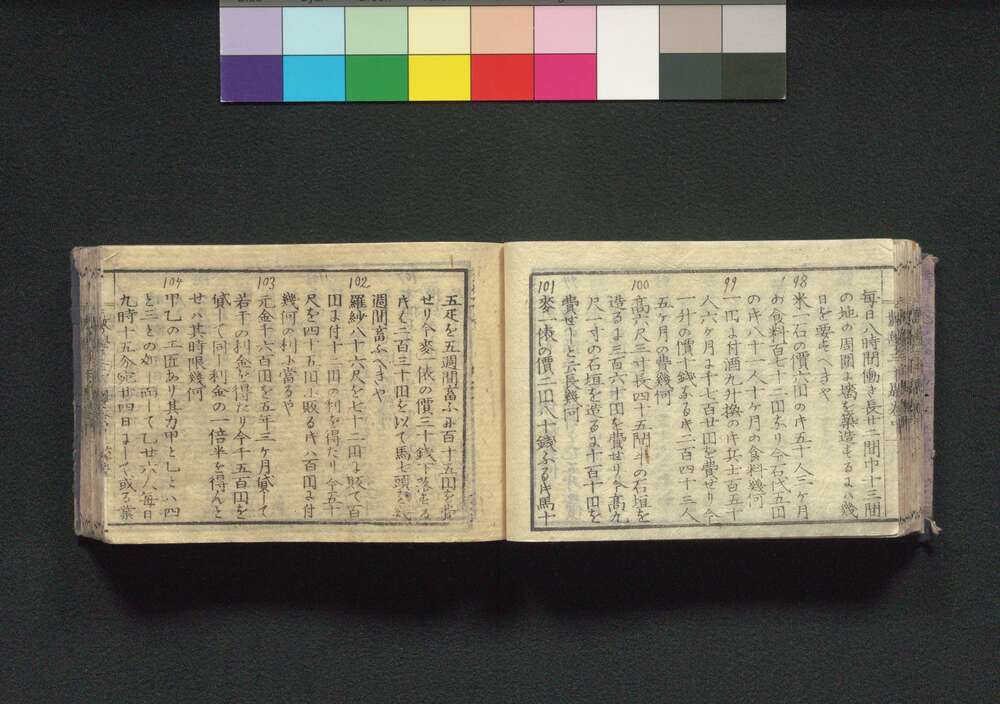 毎日八時間働き長廿二間巾十三間
の地の周圍よ墻を築造もるよハ幾
日を要もへきや
98
米一石の價六田のキ五十人三ヶ月
お食料百七十一田なり今石代五田
のキ八十一人十ヶ月の食料幾何
99
一田よ付酒九升換のキ兵士百五十
人六ヶ月よ千七百廿田を費せり今
一升の價十錢なるキ二百四十三人
五ヶ月の費幾何
100
高六尺三寸長四十五間半の石垣を
造るよ三百六十田を費せり今高九
尺一寸の石垣を造るよ千百十田を
費せーと云長幾何
101
麥一俵の價二田八十錢なるキ馬十
五疋を五週間畜ふよ百十五田を費
せり今麥一俵の價三十錢下落もる
キ二百三十田を以て馬七頭を幾
週間畜ふへきや
102
羅紗八十六尺を七十二田よ販て百
田よ付十二田の利を得たり今五十
尺を四十五田よ販るキハ百田よ付
幾何の利よ當るや
103
元金千六百田を五年三ヶ月貸ーて
若干の利金を得たり今千五百田を
貸ーて同ー利金の一倍半を得んと
せハ其時限幾何
104
甲乙の工匠あり其力甲と乙とハ四
と三との如ー而ーて乙廿六人毎日
九時十五分宛廿四日よーて或る業